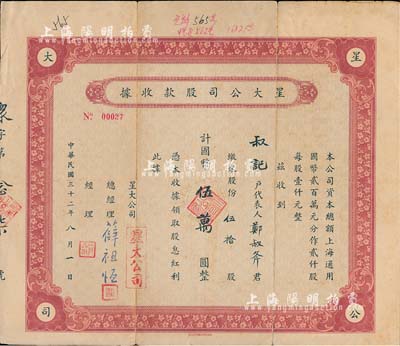 上海陽明拍賣
565
大
星
星大公司股款收據
No 00027
本公司資本總額上海通用
國幣貳百萬元分作貳仟股
每股壹仟元整
茲收到
叔記 戶代表人鄭叔 君
繳 股份 伍拾 股
計國幣 伍萬 圓整
憑本收據領取股息紅利
此據
星大公司
總經理 薛祖恆
經理
星大公司
中華民國三十二年 八月一日
字第
號
司
公
上海陽明拍賣